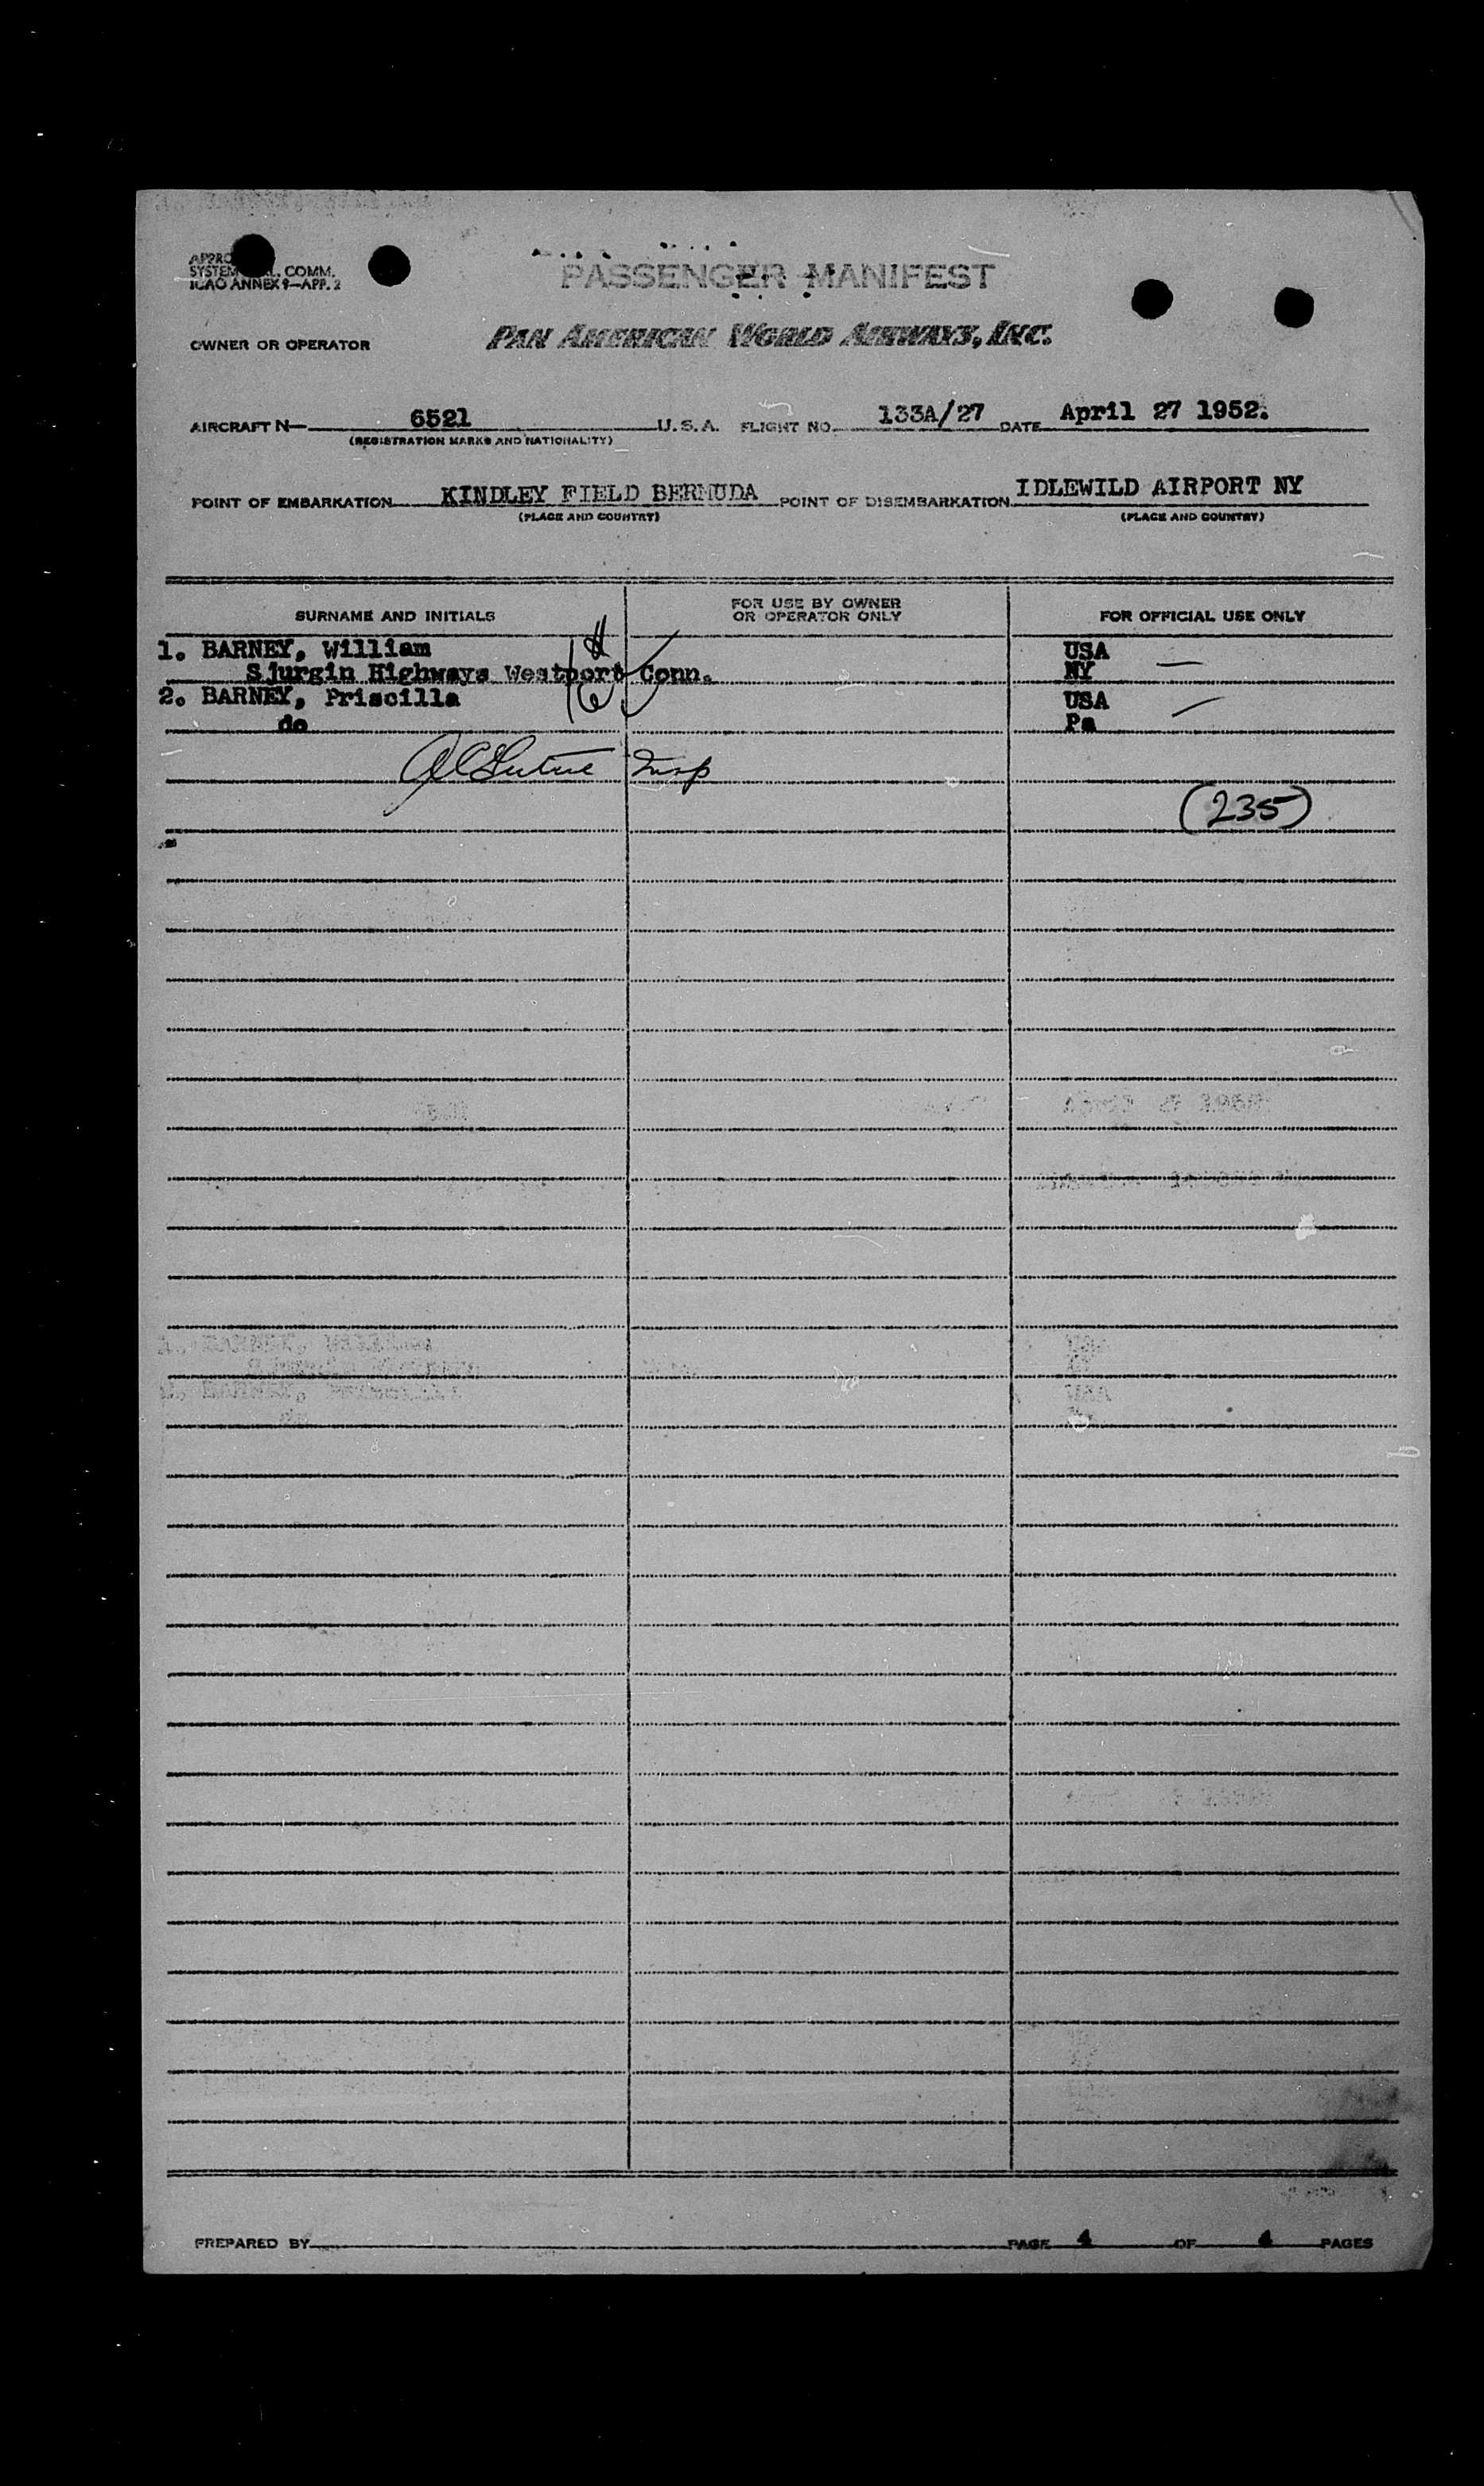 SYSTEM COMM.
ICAO ANNEX 9—APP. 2
PASSENGER MANIFEST
OWNER OR OPERATOR PAN AMERICAN WORLD AIRWAYS, INC.
AIRCRAFT N— 6521 U.S.A. FLIGHT NO. 133A/27 DATE April 27 1952.
(REGISTRATION MARKS AND NATIONALITY)
POINT OF EMBARKATION KINDLEY FIELD BERMUDA POINT OF DISEMBARKATION IDLEWILD AIRPORT NY
(PLACE AND COUNTRY) (PLACE AND COUNTRY)
SURNAME AND INITIALS FOR USE BY OWNER OR OPERATOR ONLY FOR OFFICIAL USE ONLY
1. BARNEY, William USA
Sjurgin Highways Westport Conn. NY —
2. BARNEY, Priscilla USA
do Pa —
Insp
(235)
PREPARED BY PAGE 4 OF 4 PAGES